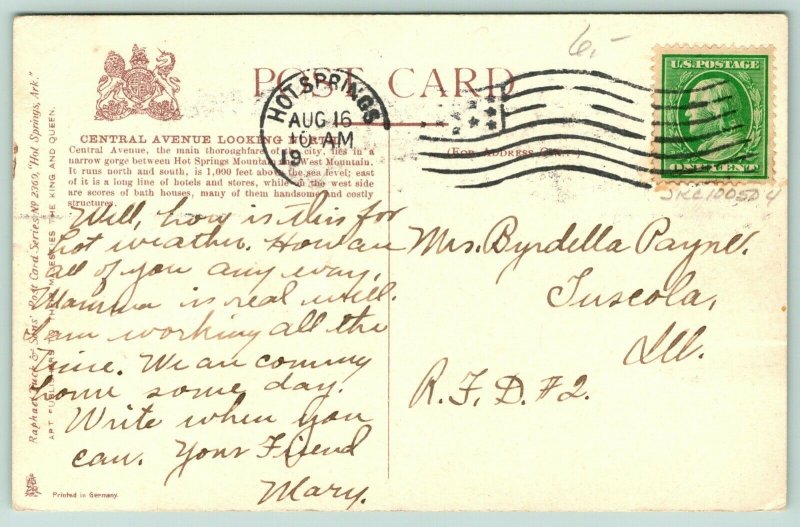 6.-
POST CARD
HOT SPRINGS
AUG 16
10 AM
19
U.S. POSTAGE
ONE CENT
CENTRAL AVENUE LOOKING NORTH
Central Avenue, the main thoroughfare of the city, lies in a
narrow gorge between Hot Springs Mountain and West Mountain.
It runs north and south, is 1,000 feet above the sea level; east
of it is a long line of hotels and stores, while on the west side
are scores of bath houses, many of them handsome and costly
structures.
(FOR ADDRESS ONLY)
SKC1005D4
Raphael Tuck & Sons' Post Card Series Nº 2369, "Hot Springs, Ark."
ART PUBLISHERS TO THEIR MAJESTIES THE KING AND QUEEN.
Will, how is this for
hot weather. How are
all of you any way.
Mamma is real well.
I am working all the
time. We are coming
home some day.
Write when you
can. Your Friend
Mary.
Mrs. Byrdella Payne.
Tuscola,
Ill.
R.F.D. #2.
Printed in Germany.